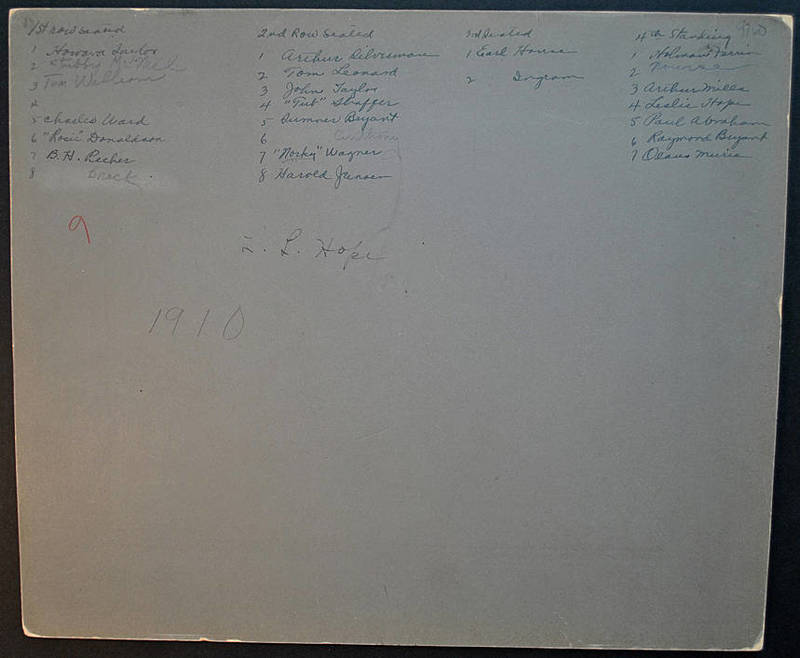 1st row seated
1 Howard Taylor
2 Stubby
3 Tom William
4
5 Charles Ward
6 "Rosie" Donaldson
7 B. H. Richer
8 Breck.
2nd Row Seated
1 Arthur Silverman
2 Tom Leonard
3 John Taylor
4 "Tub" Shaffer
5 Sumner Bryant
6 Anthony
7 "Nosky" Wagner
8 Harold Jensen
3rd Seated
1 Earl House
2 Ingram
4th Standing
1 Holman
2 Nourse
3 Arthur Mills
4 Leslie Hope
5 Paul Abraham
6 Raymond Bryant
7 Olaus Murie
9
L. L. Hope
1910